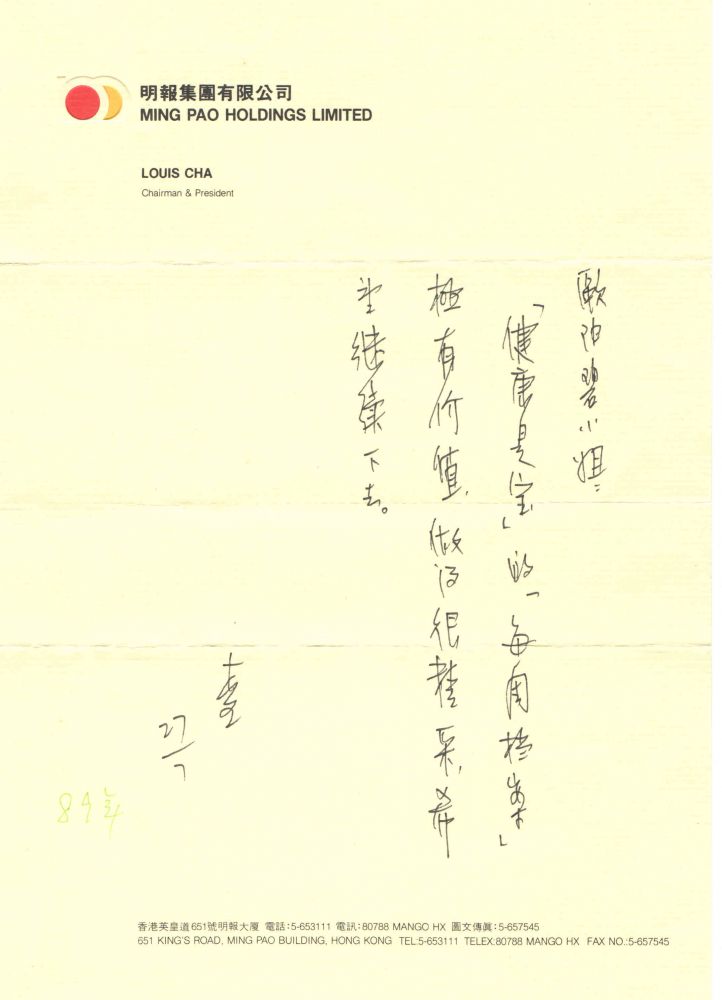 明報集團有限公司
MING PAO HOLDINGS LIMITED
LOUIS CHA
Chairman & President
歐陽碧小姐：
「健康是宝」的「每周檔案」
極有价值，做得很精采，希
望继續下去。
查
27/7
89年
香港英皇道651號明報大厦 電話:5-653111 電訊:80788 MANGO HX 圖文傳眞:5-657545
651 KING'S ROAD, MING PAO BUILDING, HONG KONG TEL:5-653111 TELEX:80788 MANGO HX FAX NO.:5-657545